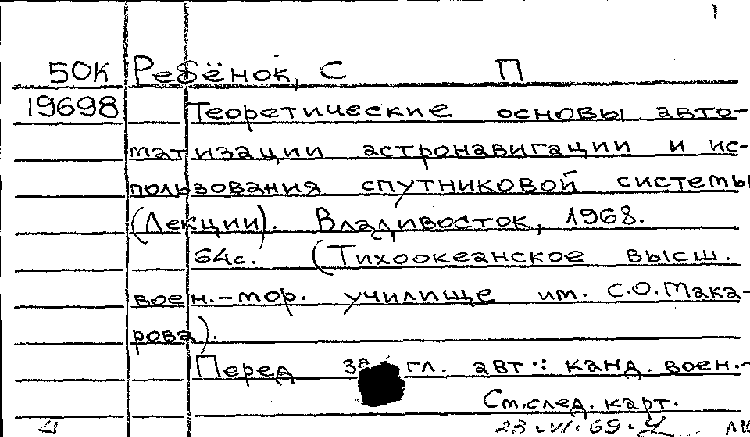 1
50К Ребёнок, С П
19698 Теоретические основы авто-
матизации астронавигации и ис-
пользования спутниковой системы
(Лекции). Владивосток, 1968.
64с. (Тихоокеанское высш.
воен.-мор. училище им. С.О.Мака-
рова).
Перед гл. авт.: канд. воен.-
См.след. карт.